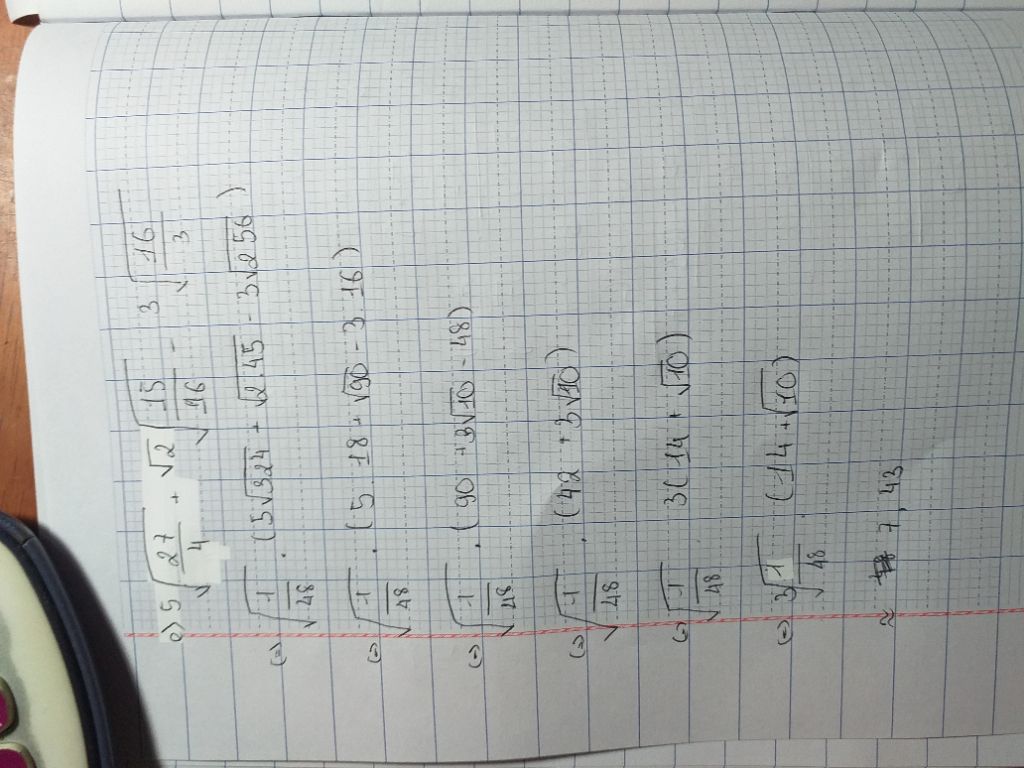 a) 5√(27/4) + √2 √(15/16) - 3√(16/3)
(=) √(1/48) . (5√324 + √2 √45 - 3√256)
(=) √(1/48) . (5 . 18 + √90 - 3 . 16)
(=) √(1/48) . (90 + 3√10 - 48)
(=) √(1/48) . (42 + 3√10)
(=) √(1/48) 3(14 + √10)
(=) 3√(1/48) (14 + √10)
≈ 7,43